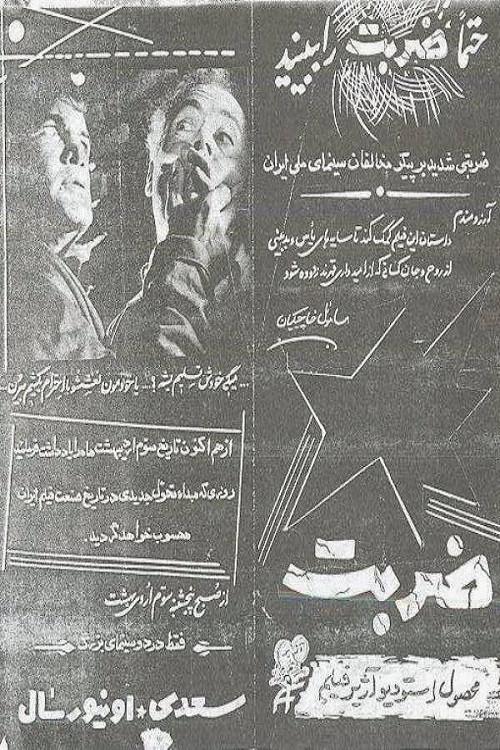 حتماً ضربت را ببینید
ضربتی شدید بر پیکر مخالفان سینمای ملی ایران
آرزومندم
داستان این فیلم کمک کند تا سایه‌های یأس و بدبینی
از روح و جان کسانی که از امیدواری دورند زدوده شود
ساموئل خاچیکیان
ضربت
محصول استودیو آژیر فیلم
... میگی خودش تسلیم بشه؟ ... یا خودمون
از هم اکنون تاریخ سوم اردیبهشت ماه را بیاد داشته باشید
روزی که مبداء تحول جدیدی در تاریخ صنعت فیلم ایران
محسوب خواهد گردید.
از صبح پنجشنبه سوم اردی بهشت
فقط در دو سینمای بزرگ
سعدی * اونیورسال